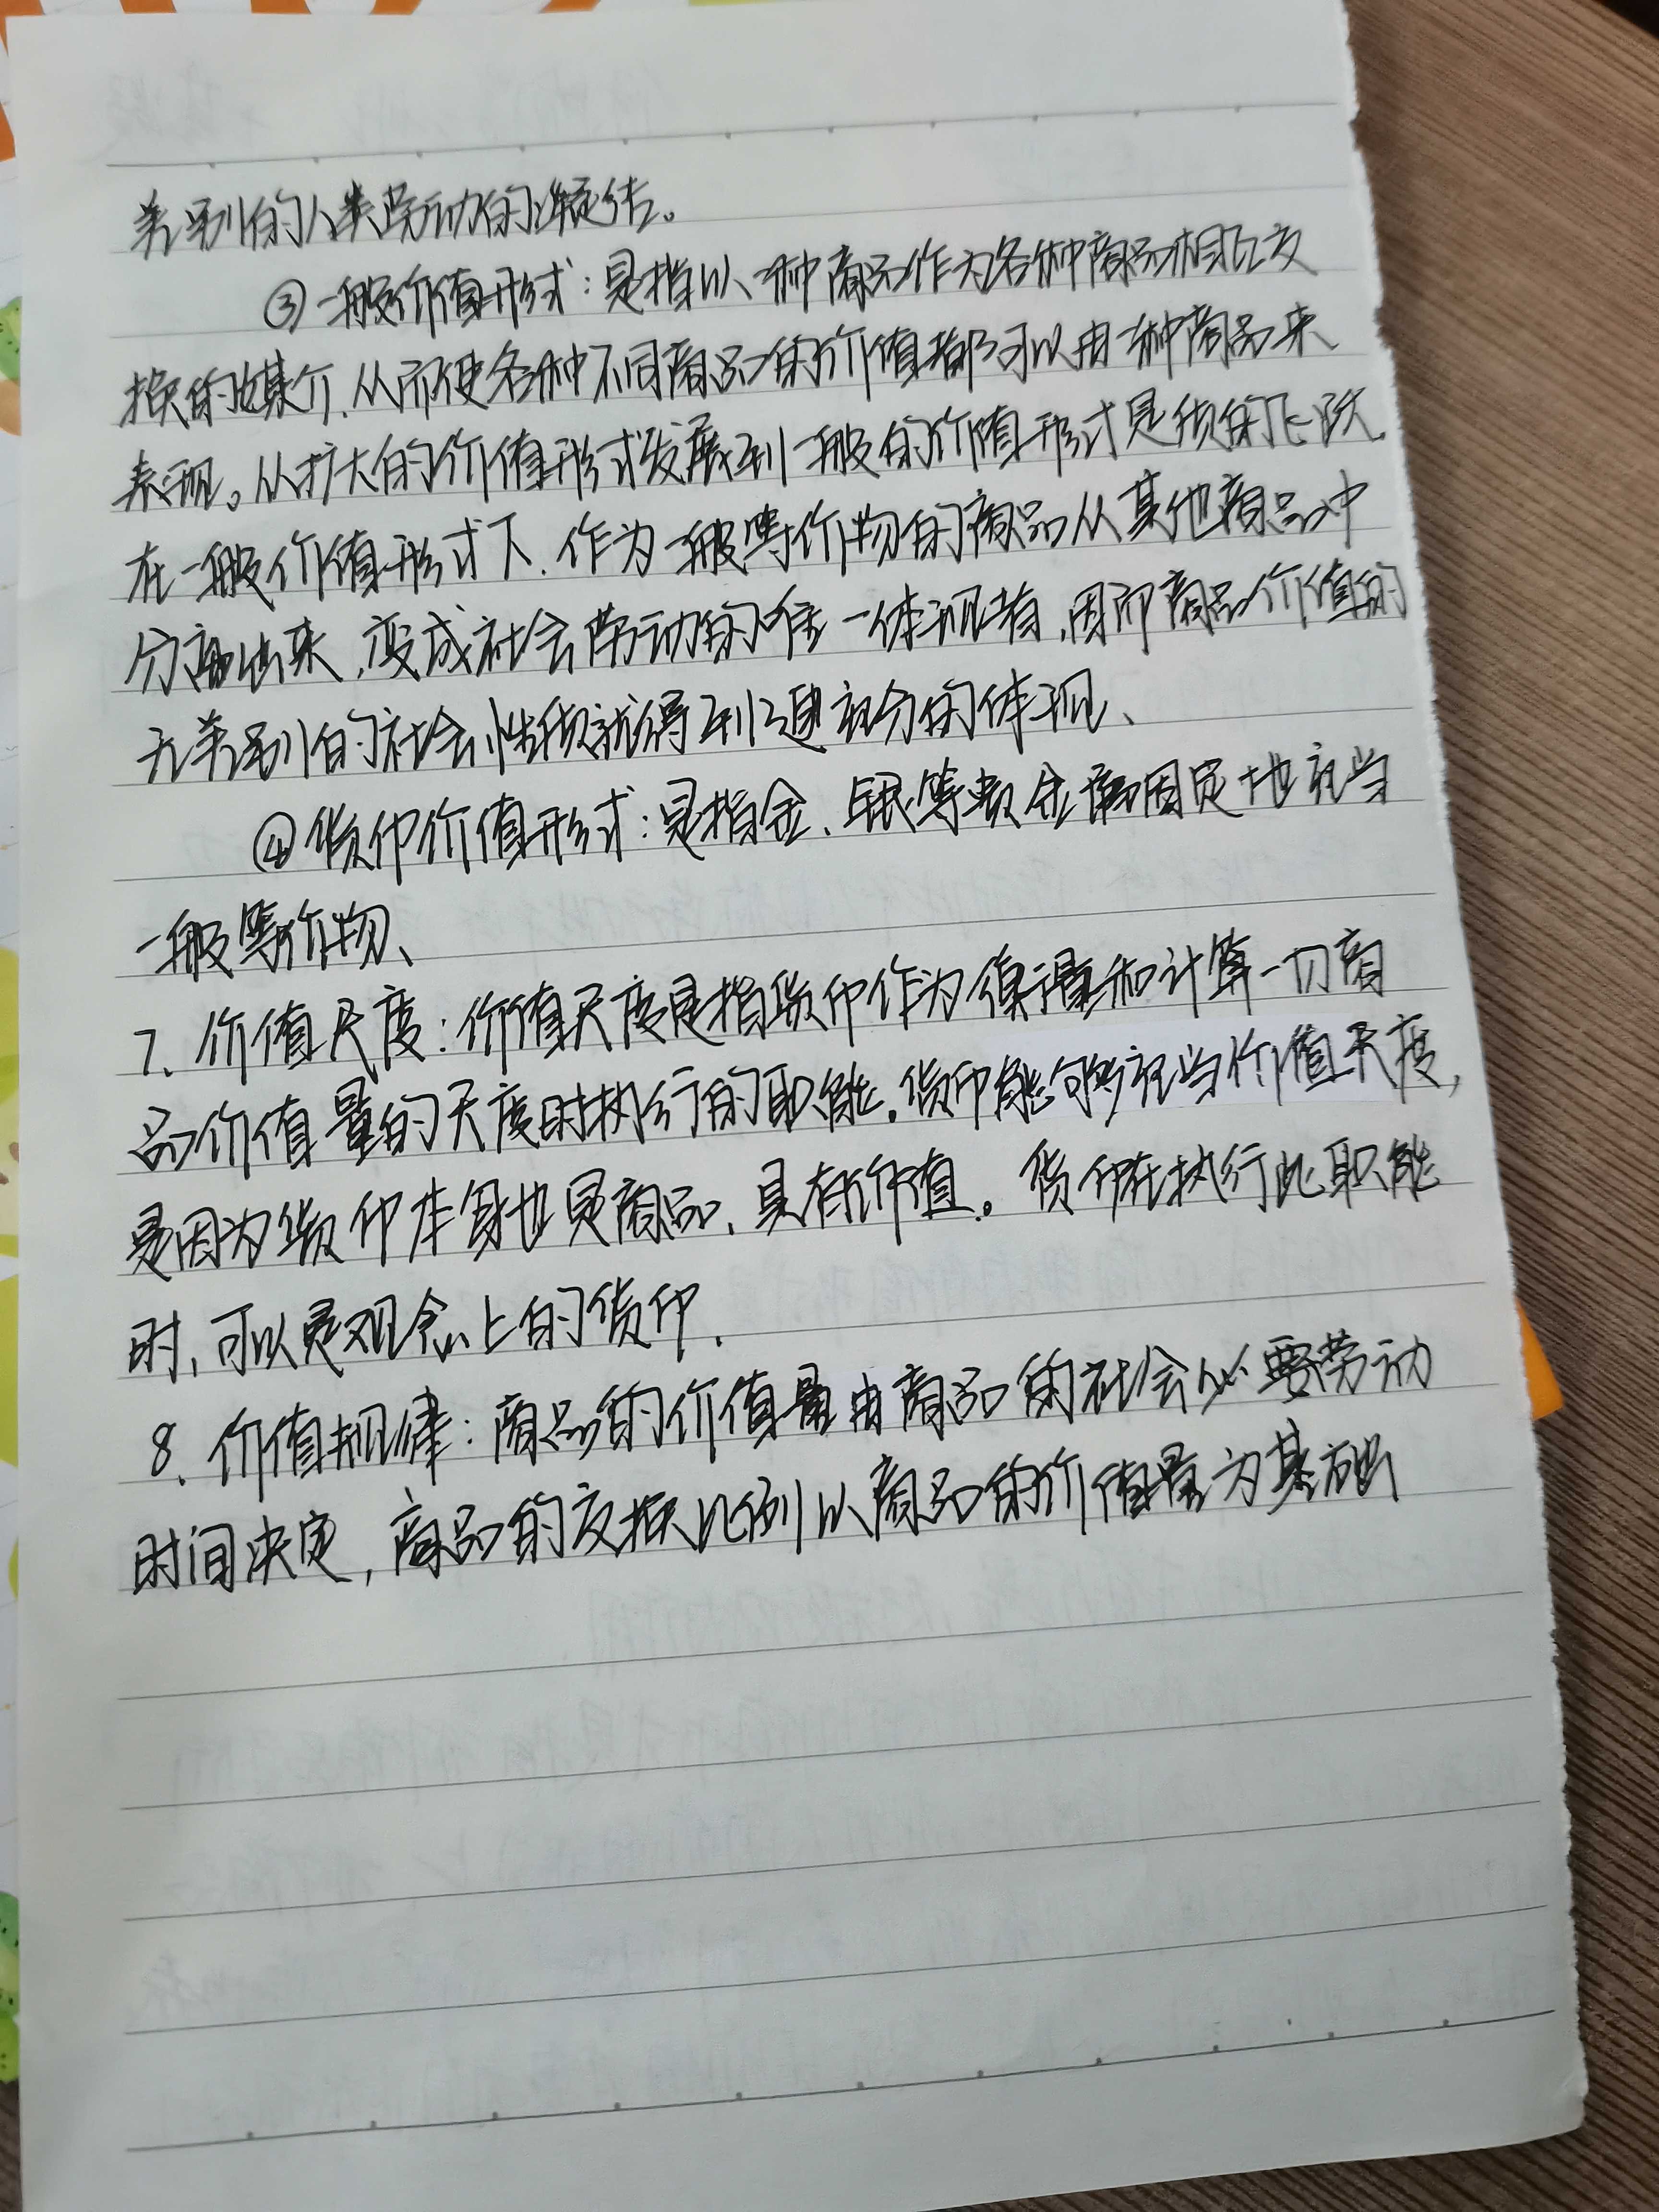 差别的人类劳动的凝结。
③一般价值形式：是指以一种商品作为各种商品相互交
换的媒介，从而使各种不同商品的价值都可以由一种商品来
表现。从扩大的价值形式发展到一般的价值形式是质的飞跃，
在一般价值形式下，作为一般等价物的商品从其他商品中
分离出来，变成社会劳动的唯一体现者，因而商品价值的
无差别的社会性质就得到了更充分的体现、
④货币价值形式：是指金、银等贵金属固定地充当
一般等价物、
7、价值尺度：价值尺度是指货币作为衡量和计算一切商
品价值量的尺度时执行的职能。货币能够充当价值尺度，
是因为货币本身也是商品，具有价值。货币在执行此职能
时，可以是观念上的货币，
8、价值规律：商品的价值量由商品的社会必要劳动
时间决定，商品的交换比例以商品的价值量为基础